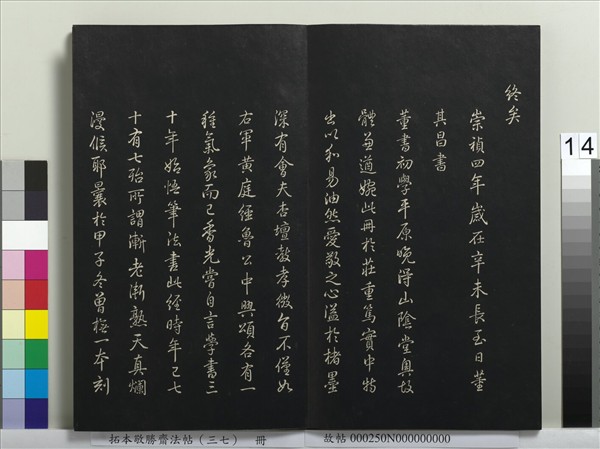 終矣
崇禎四年歲在辛未長至日董
其昌書
董書初學平原晚得山陰堂奧故
體兼遒婉此冊於莊重篤實中特
出以和易油然愛敬之心溢於楮墨
深有會夫杏壇教孝微旨不僅如
右軍黃庭經魯公中興頌各有一
種氣象而已香光嘗自言學書三
十年始悟筆法書此經時年已七
十有七殆所謂漸老漸熟天真爛
漫候耶曩於甲子冬曾橅一本刻
14
拓本敬勝齋法帖(三七) 冊
故帖 000250N000000000